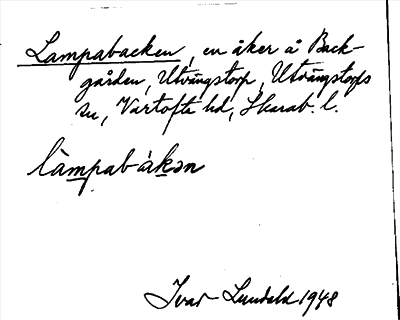 Lampabacken, en åker å Back-
gården, Utvängstorp, Utvängstorps
sn, Vartofta hd, Skarab. l.
làmpabàkən
Ivar Lundahl 1948